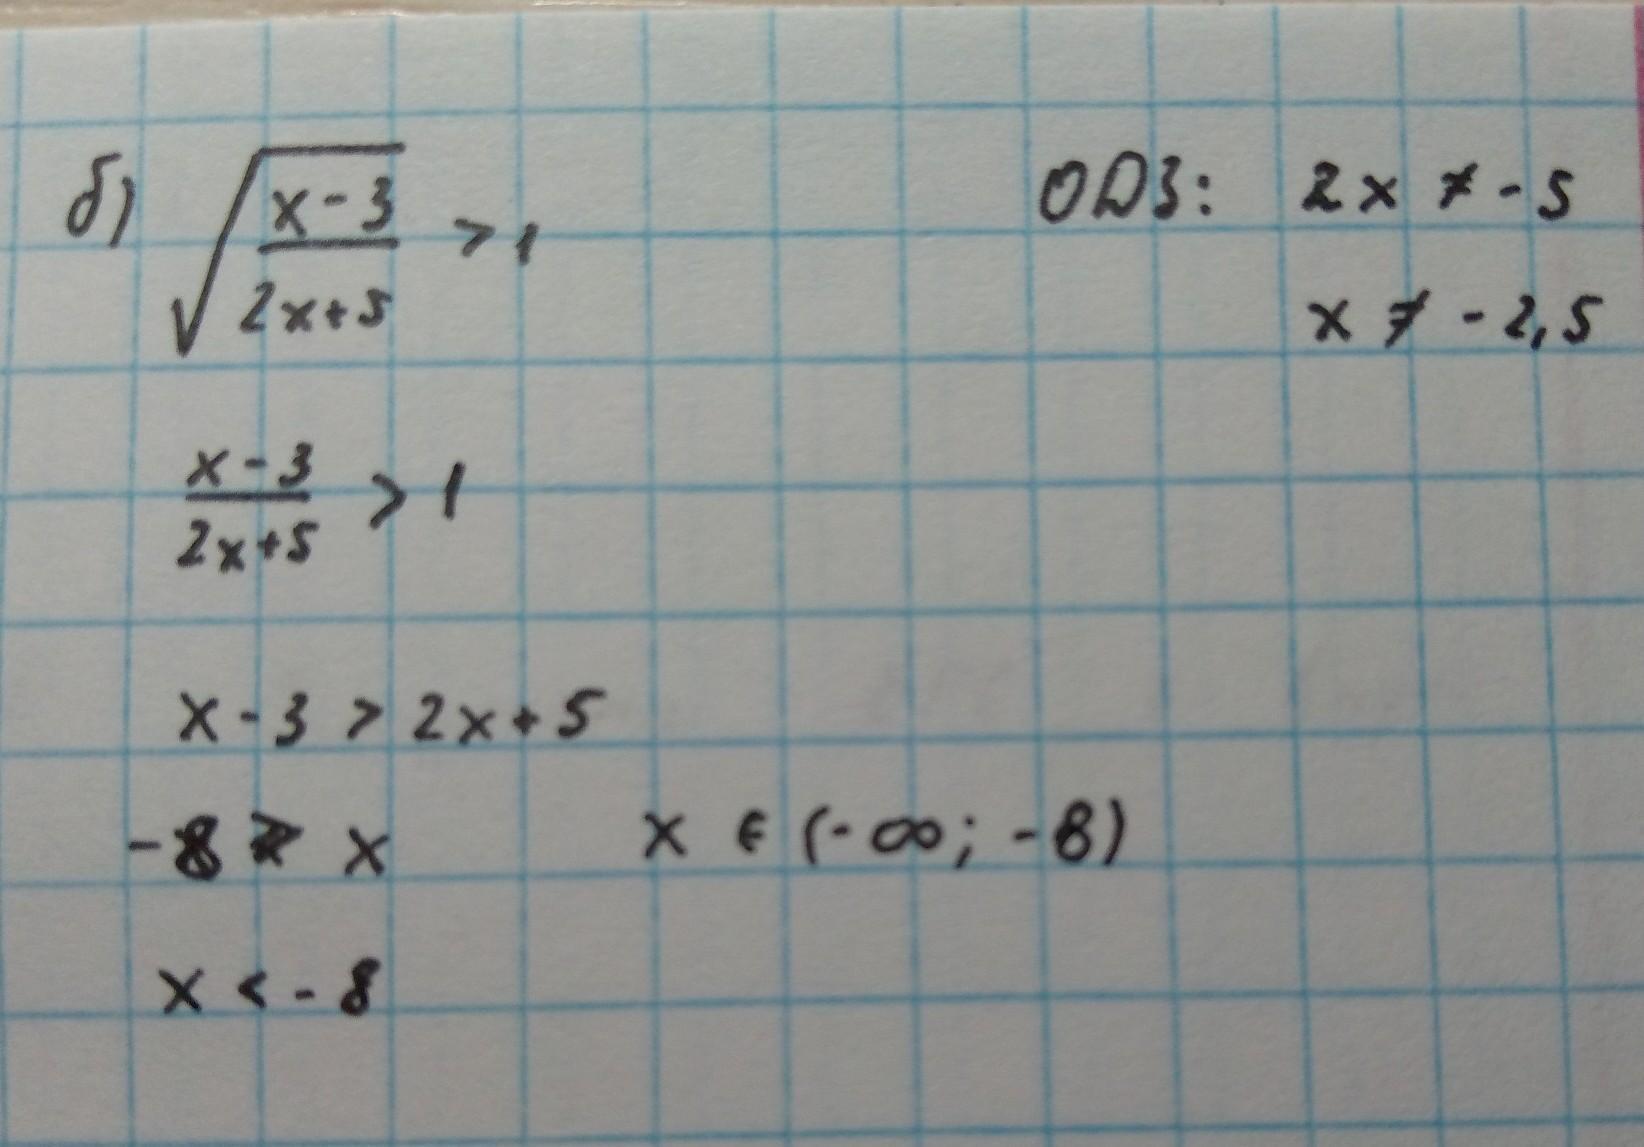 б) √((x-3)/(2x+5)) > 1
ОДЗ: 2x ≠ -5
x ≠ -2,5
(x-3)/(2x+5) > 1
x-3 > 2x+5
-8 > x x ∈ (-∞; -8)
x < -8